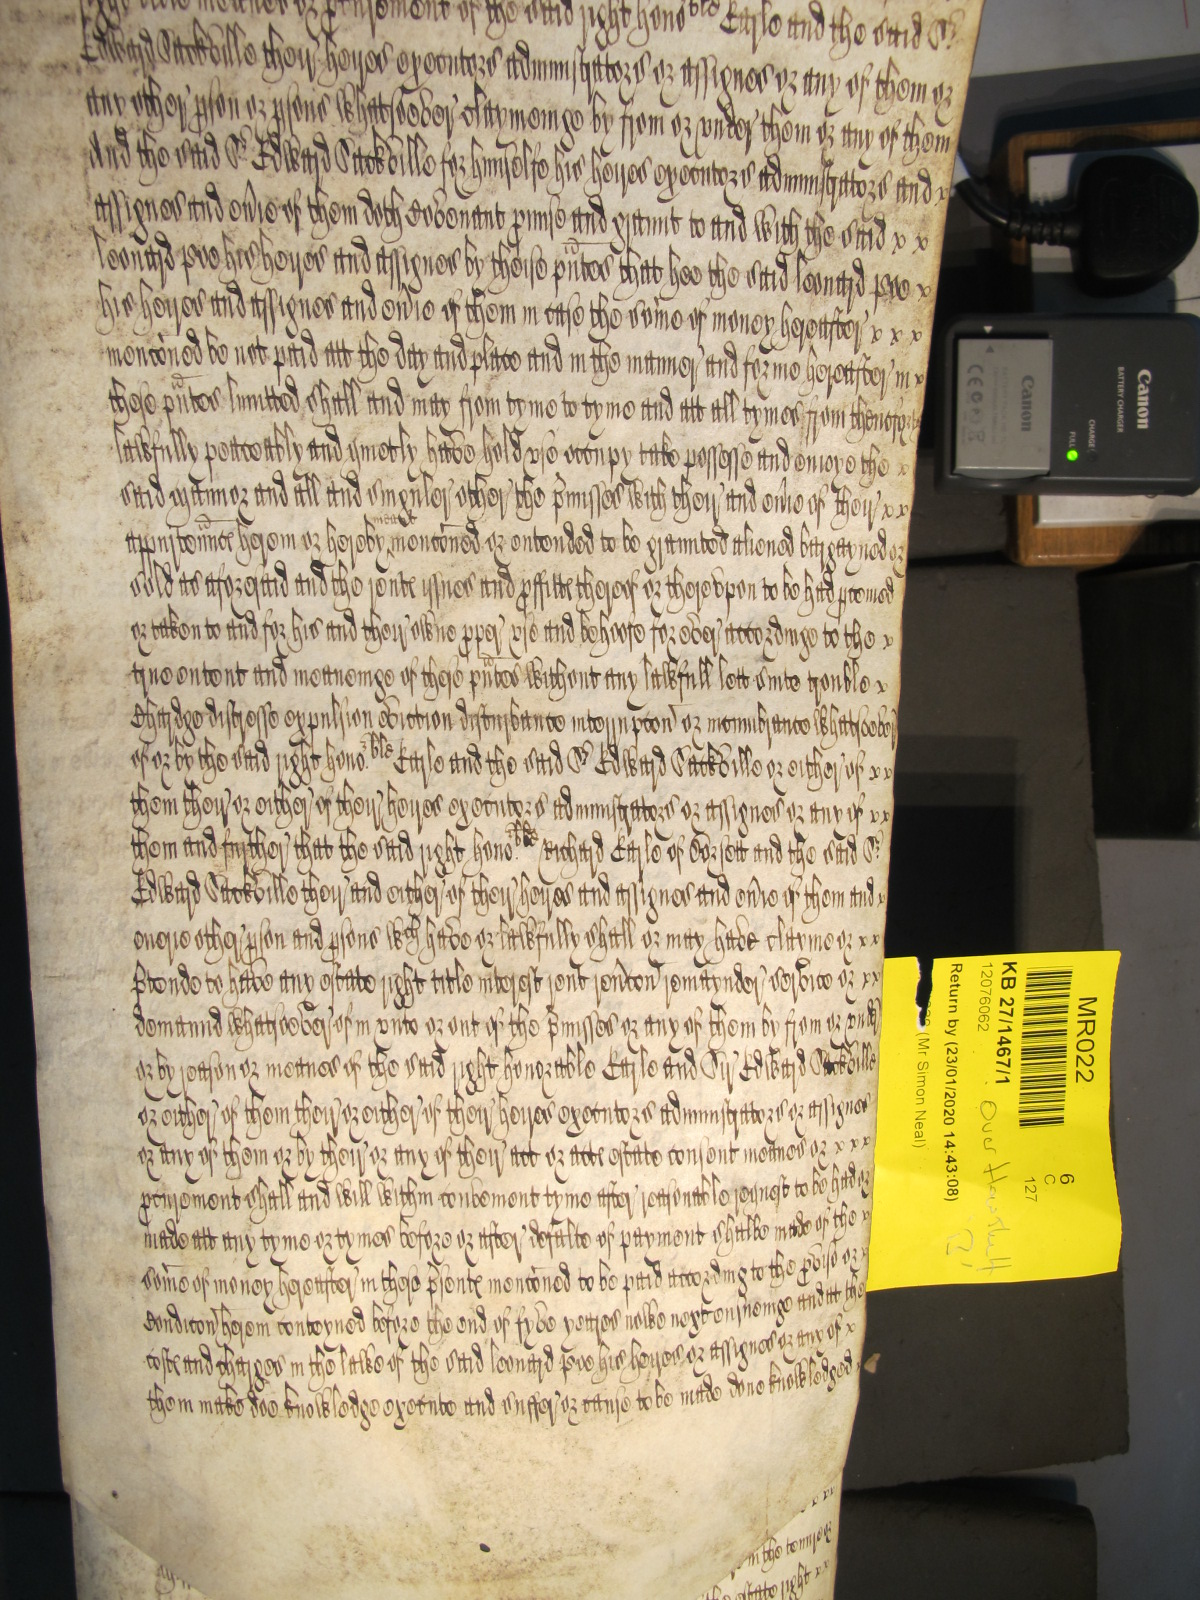 meanes or procurement of the said right hono^ble Earle and the said S^r
Edward Sackvile their heyres executors administrators or assignes or any of them or
any other pson or psons whatsoever claymeinge by from or under them or any of them
And the said S^r Edward Sackville for himselfe his heyres executors administrators and x
assignes and ev̄ie of them doth Covenant pmise and graunt to and with the said x x
Leonard Poe his heyres and assignes by theise pn̄tes that hee the said Leonard Poe x
his heyres and assignes and ev̄ie of them in case the som̄e of money hereafter x x x
menc̄oned be not paid att the day and place and in the manner and forme hereafter in x
these pn̄tes limitted shall and may from tyme to tyme and att all tymes from thenceforth
lawfully peaceably and quietly have hold use occupy take possesse and enioye the x
said mannor and all and singuler other the p̄misses with their and ev̄ie of their x x
appurten̄nce herein or hereby meant menc̄oned or entended to be graunted aliened bargayned or
sold as aforesaid and the rente issues and pffitte thereof or thereupon to be had pceived
or taken to and for his and their owne pper use and behoofe for ever accordinge to the x
true entent and meaneinge of these pn̄tes without any lawfull lett suite trouble x
Chardge distresse expulsion eviction disturbance interrupc̄on or incumbrance whatsoever
of or by the said right hono^ble Earle and the said S^r Edward Sackville or either of x x
them their or either of their heyres executors administrators or assignes or any of x x
them and further that the said right hono^ble Richard Earle of Dorsett and the said S^r
Edward Sackville their and either of their heyres and assignes and ev̄ie of them and x
euerie other pson and psons w^ch have or lawfully shall or may have clayme or x x
p̄tende to have any estate right title interest rent revc̄on remaynder service or x x
demaund whatsoever of in unto or out of the p̄misses or any of them by from or under
or by reason or meanes of the said right honorable Earle and Sir Edward Sackville
or either of them their or either of their heyres executors administrators or assignes
or any of them or by their or any of their act or acte estate consent meanes or x x x
pcurement shall and will within convenient tyme after reasonable request to be had or
made att any tyme or tymes before or after defalte of payment shalbe made of the x
som̄e of money hereafter in these p̄sente menc̄oned to be paid according to the p̄vise or x
Condic̄on herein conteyned before the end of fyve yeares nowe next ensueinge and att the
coste and charges in the lawe of the said Leonard Poe his heyres or assignes or any of x
them make doe knowledge execute and suffer or cause to be made done knowledged
x x x
in the tenure
the estate right x x
Canon
BATTERY CHARGER
CHARGE
FULL
Canon
MR022
6
C
127
KB 27/1467/1
12076062
Return by (23/01/2020 14:43:08)
(Mr Simon Neal)
Over